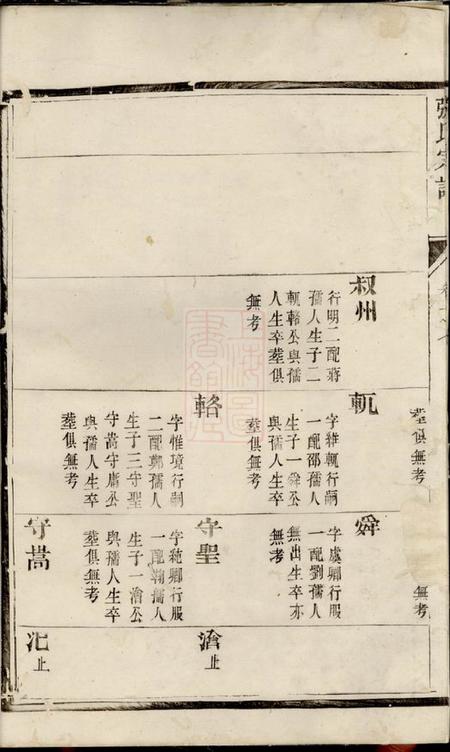 張氏宗譜
葬俱無考
無考
叔州
行明二配蔣
孺人生子二
軏輅公與孺
人生卒葬俱
無考
軏
字維軏行嗣
一配邵孺人
生子一舜公
與孺人生卒
葬俱無考
輅
字惟璄行嗣
二配鄭孺人
生子三守聖
守嵩守庸公
與孺人生卒
葬俱無考
舜
字虞卿行服
一配劉孺人
無出生卒亦
無考
守聖
字純卿行服
一配韓孺人
生子一滄公
與孺人生卒
葬俱無考
守嵩
滄止
氾止
上海圖書館藏